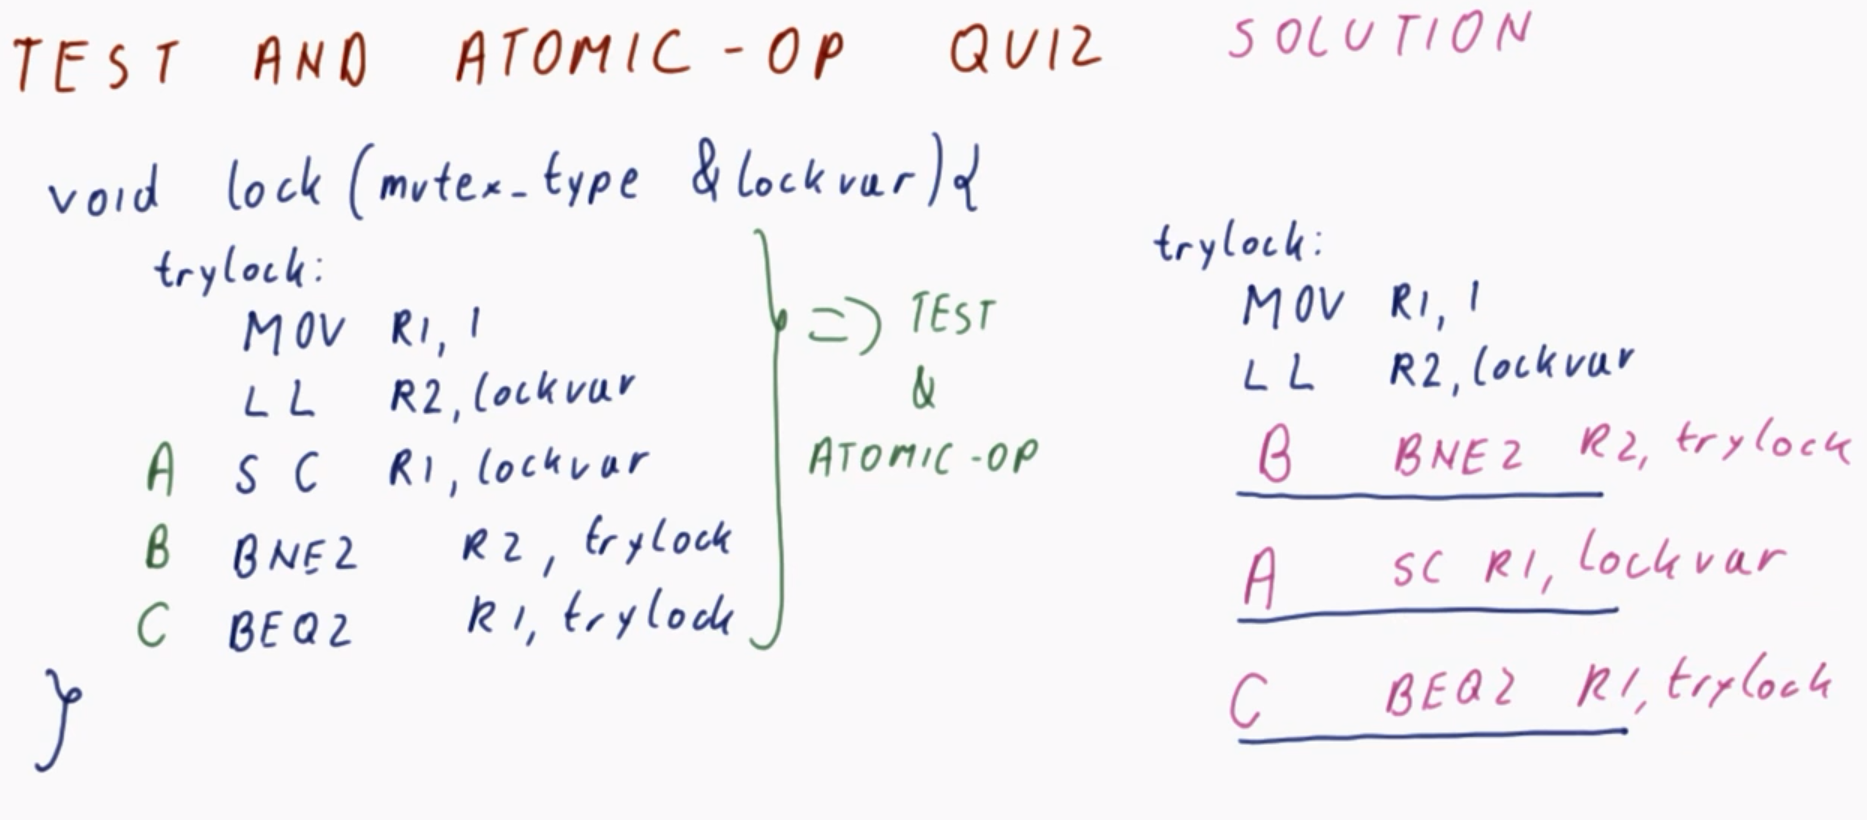 TEST AND ATOMIC-OP QUIZ SOLUTION
void lock (mutex_type &lockvar){
trylock:
MOV R1, 1
LL R2, lockvar
A SC R1, lockvar
B BNEZ R2, trylock
C BEQZ R1, trylock
}
=> TEST
&
ATOMIC-OP
trylock:
MOV R1, 1
LL R2, lockvar
B BNEZ R2, trylock
A SC R1, lockvar
C BEQZ R1, trylock